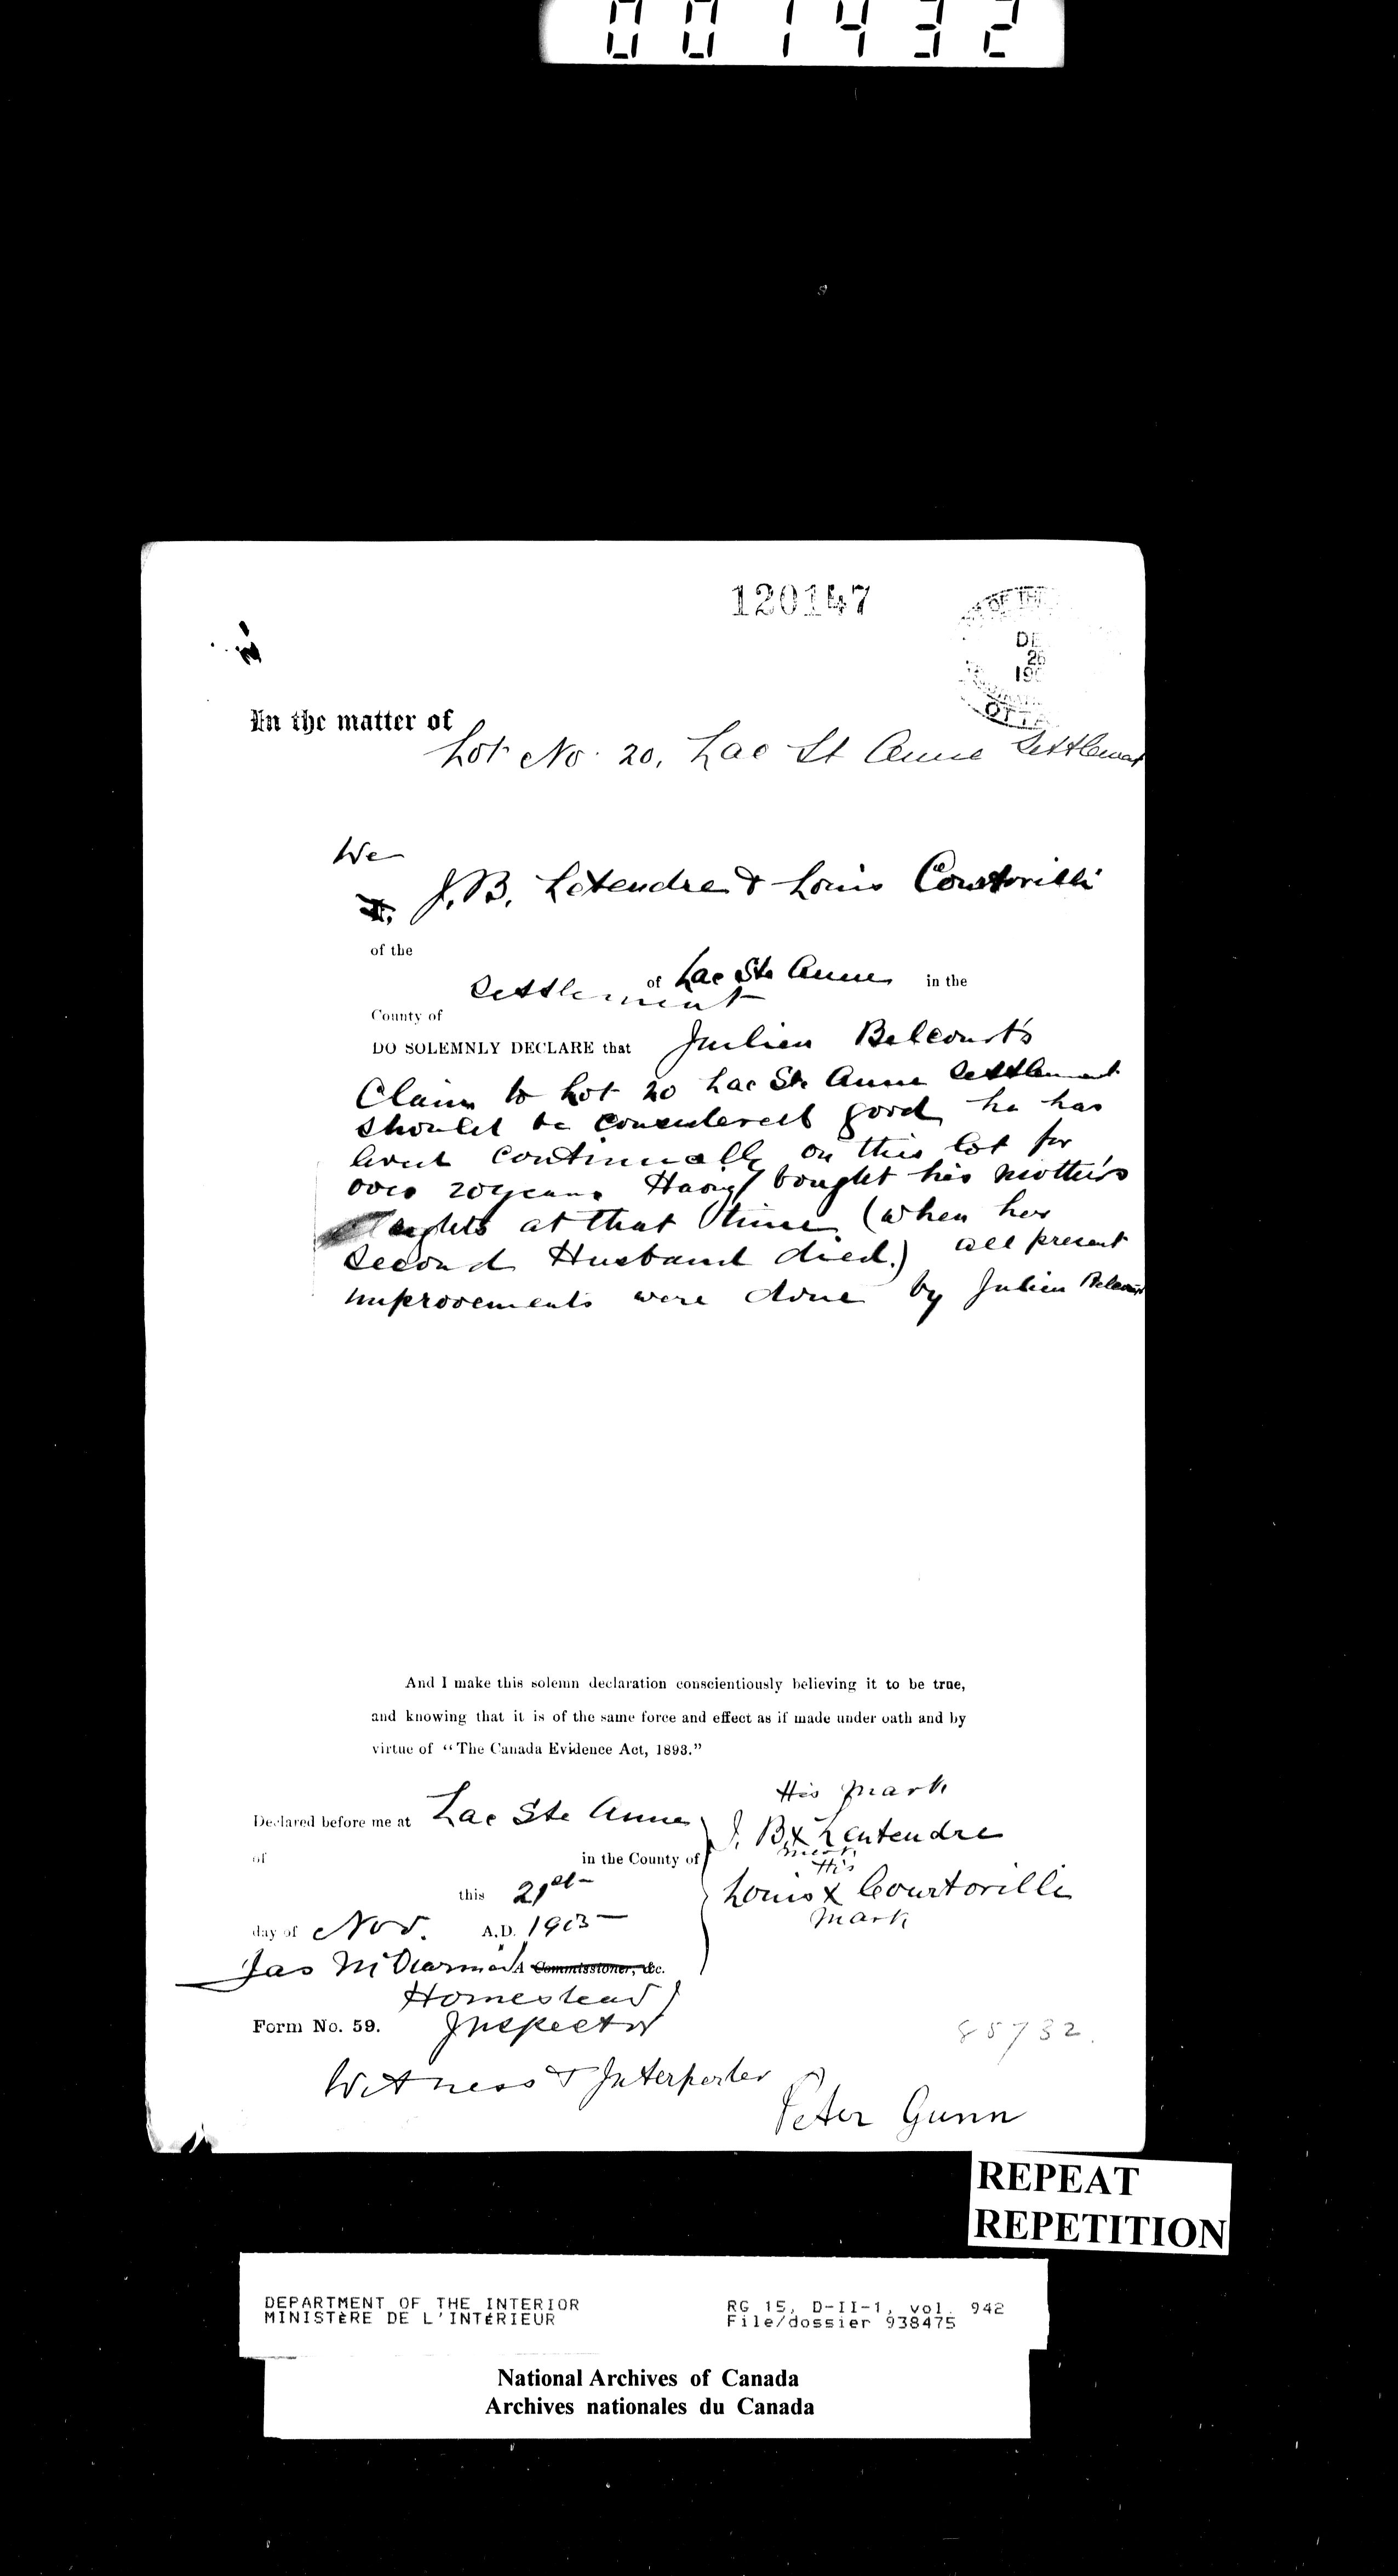 001432
120147
OF THE
DE
26
190
OTTA
In the matter of
Lot No. 20, Lac St Anne Settlement
We
I, J.B. Letendre & Louis Courtorilli
of the
Settlement of Lac Ste Anne in the
County of
DO SOLEMNLY DECLARE that Julien Belcourt's
Claim to Lot 20 Lac Ste Anne Settlement
should be considered good he has
lived continually on this lot for
over 20 years. Having bought his mother's
rights at that time (when her
second Husband died.) all present
improvements were done by Julien Belcourt
And I make this solemn declaration conscientiously believing it to be true,
and knowing that it is of the same force and effect as if made under oath and by
virtue of “The Canada Evidence Act, 1893.”
His mark
Declared before me at Lac Ste Anne J. B. X Lentendre
mark
of in the County of
His
this 21st Louis X Courtorilli
mark
day of Nov. A.D. 1905
Jas McDiarmid A Commissioner, &c.
Homestead
Form No. 59. Inspector
85732.
Witness & Interperter
Peter Gunn
REPEAT
REPETITION
DEPARTMENT OF THE INTERIOR RG 15, D-II-1, vol. 942
MINISTÈRE DE L'INTÉRIEUR File/dossier 938475
National Archives of Canada
Archives nationales du Canada